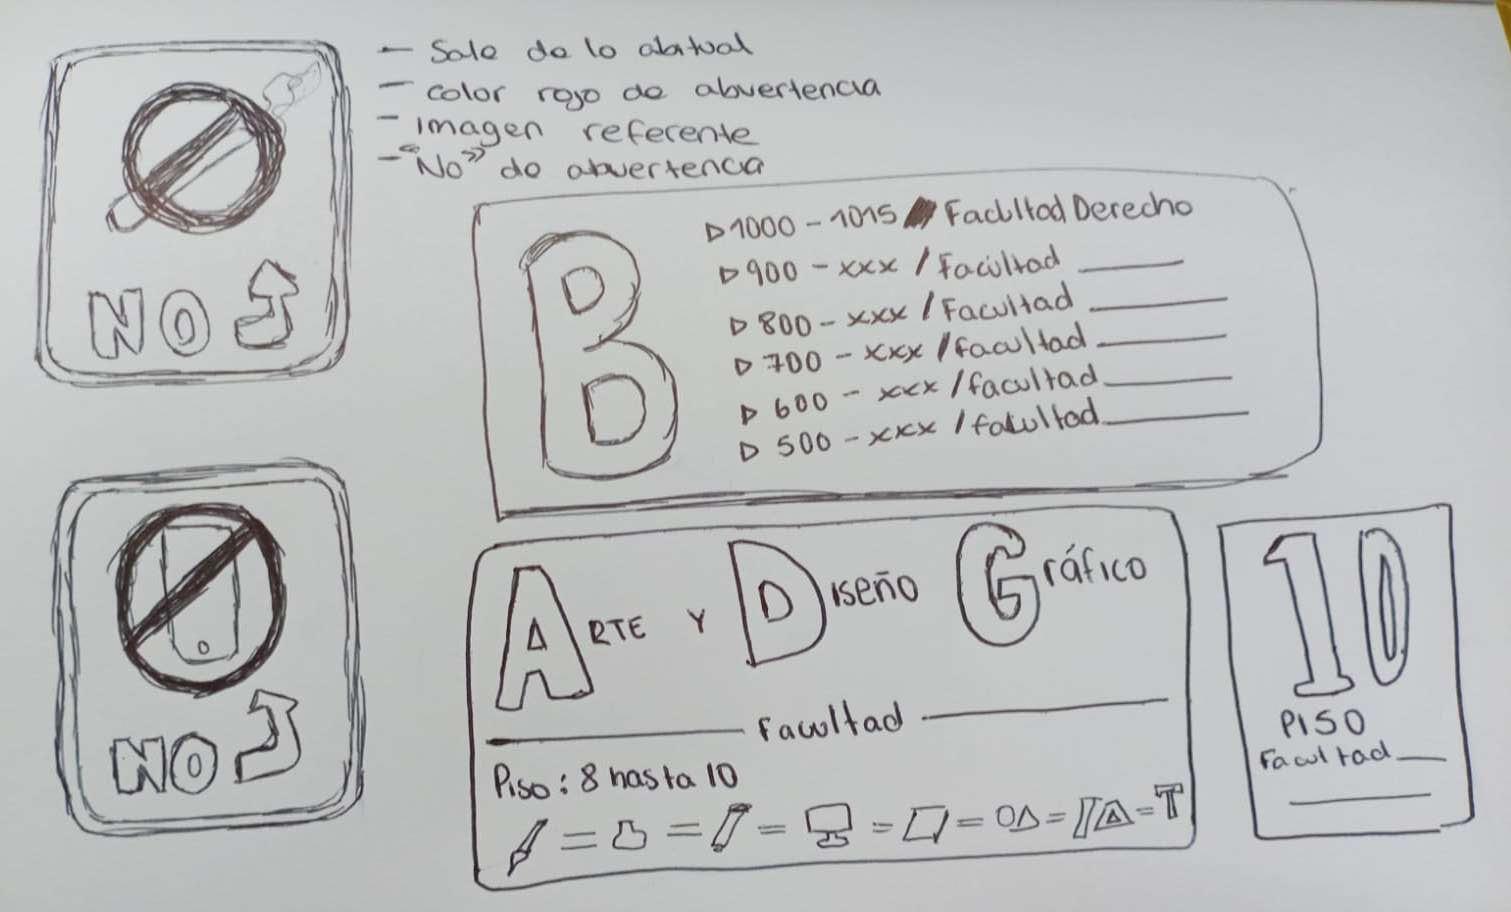 - Sale de lo abitual
- color rojo de abvertencia
- Imagen referente
- "No" de abvertencia
NO
B
▷1000 - 1015 / Facultad Derecho
▷900 - xxx / Facultad ____
▷800 - xxx / Facultad ____
▷700 - xxx / facultad ____
▷600 - xxx / facultad ____
▷500 - xxx / facultad ____
NO
ARTE Y DISEÑO Gráfico
Facultad
Piso: 8 hasta 10
T
10
PISO
Facultad ____